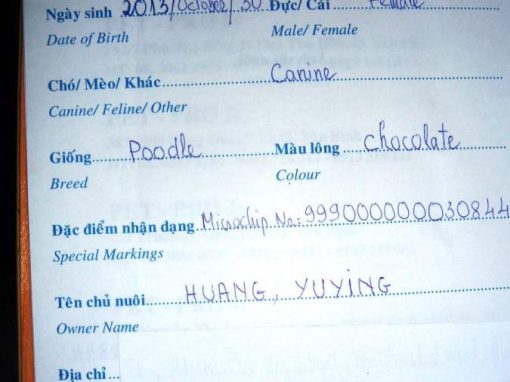 Ngày sinh 2013/October/30 Đực/ Cái Female
Date of Birth Male/ Female
Chó/ Mèo/ Khác Canine
Canine/ Feline/ Other
Giống Poodle Màu lông chocolate
Breed Colour
Đặc điểm nhận dạng Microchip No: 999000000030844
Special Markings
Tên chủ nuôi HUANG, YUYING
Owner Name
Địa chỉ